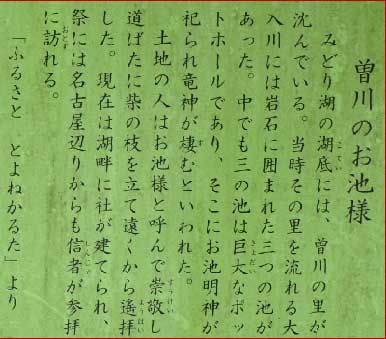 曽川のお池様
みどり湖の湖底には、曽川の里が
沈んでいる。当時その里を流れる大
入川には岩石に囲まれた三つの池が
あった。中でも三の池は巨大なポッ
トホールであり、そこにお池明神が
祀られ竜神が棲むといわれた。
土地の人はお池様と呼んで崇敬し
道ばたに柴の枝を立て遠くから遙拝
した。現在は湖畔に社が建てられ、
祭には名古屋辺りからも信者が参拝
に訪れる。
「ふるさと とよねかるた」より